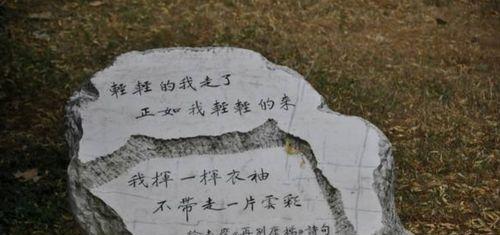 輕輕的我走了
正如我輕輕的来
我揮一揮衣袖
不帶走一片雲彩
徐志摩《再别康橋》詩句